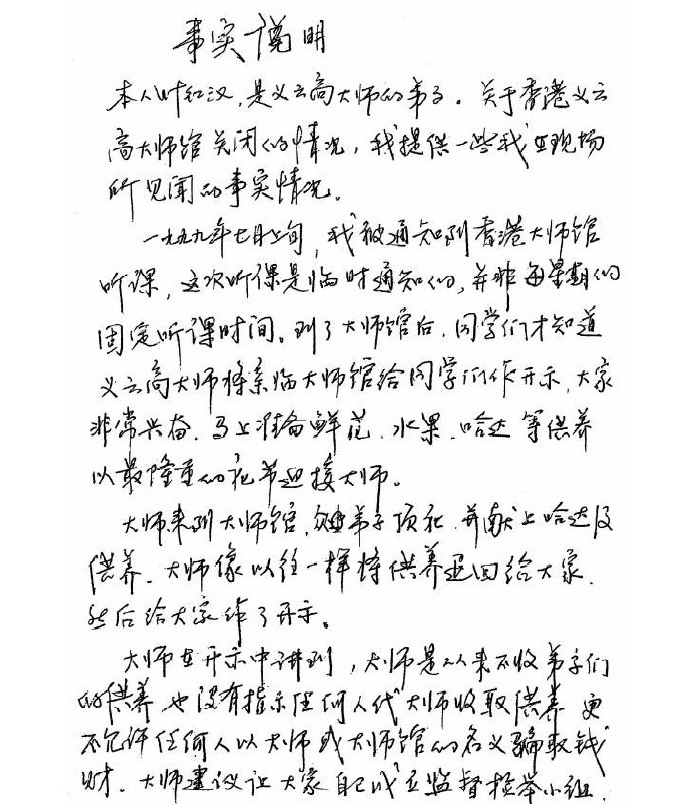 事实说明
本人叶红汉，是义云高大师的弟子。关于香港义云
高大师馆关闭的情况，我提供一些我在现场
所见闻的事实情况。
一九九九年七月上旬，我被通知到香港大师馆
听课，这次听课是临时通知的，并非每星期的
固定听课时间。到了大师馆后，同学们才知道
义云高大师将亲临大师馆给同学们作开示，大家
非常兴奋，马上准备鲜花、水果、哈达等供养
以最隆重的礼节迎接大师。
大师来到大师馆，弟子顶礼，并献上哈达及
供养，大师像以往一样将供养退回给大家，
然后给大家作了开示。
大师在开示中讲到，大师是从来不收弟子们
的供养，也没有指示任何人代大师收取供养，更
不允许任何人以大师或大师馆的名义骗取钱
财。大师建议让大家自己成立监督检举小组，